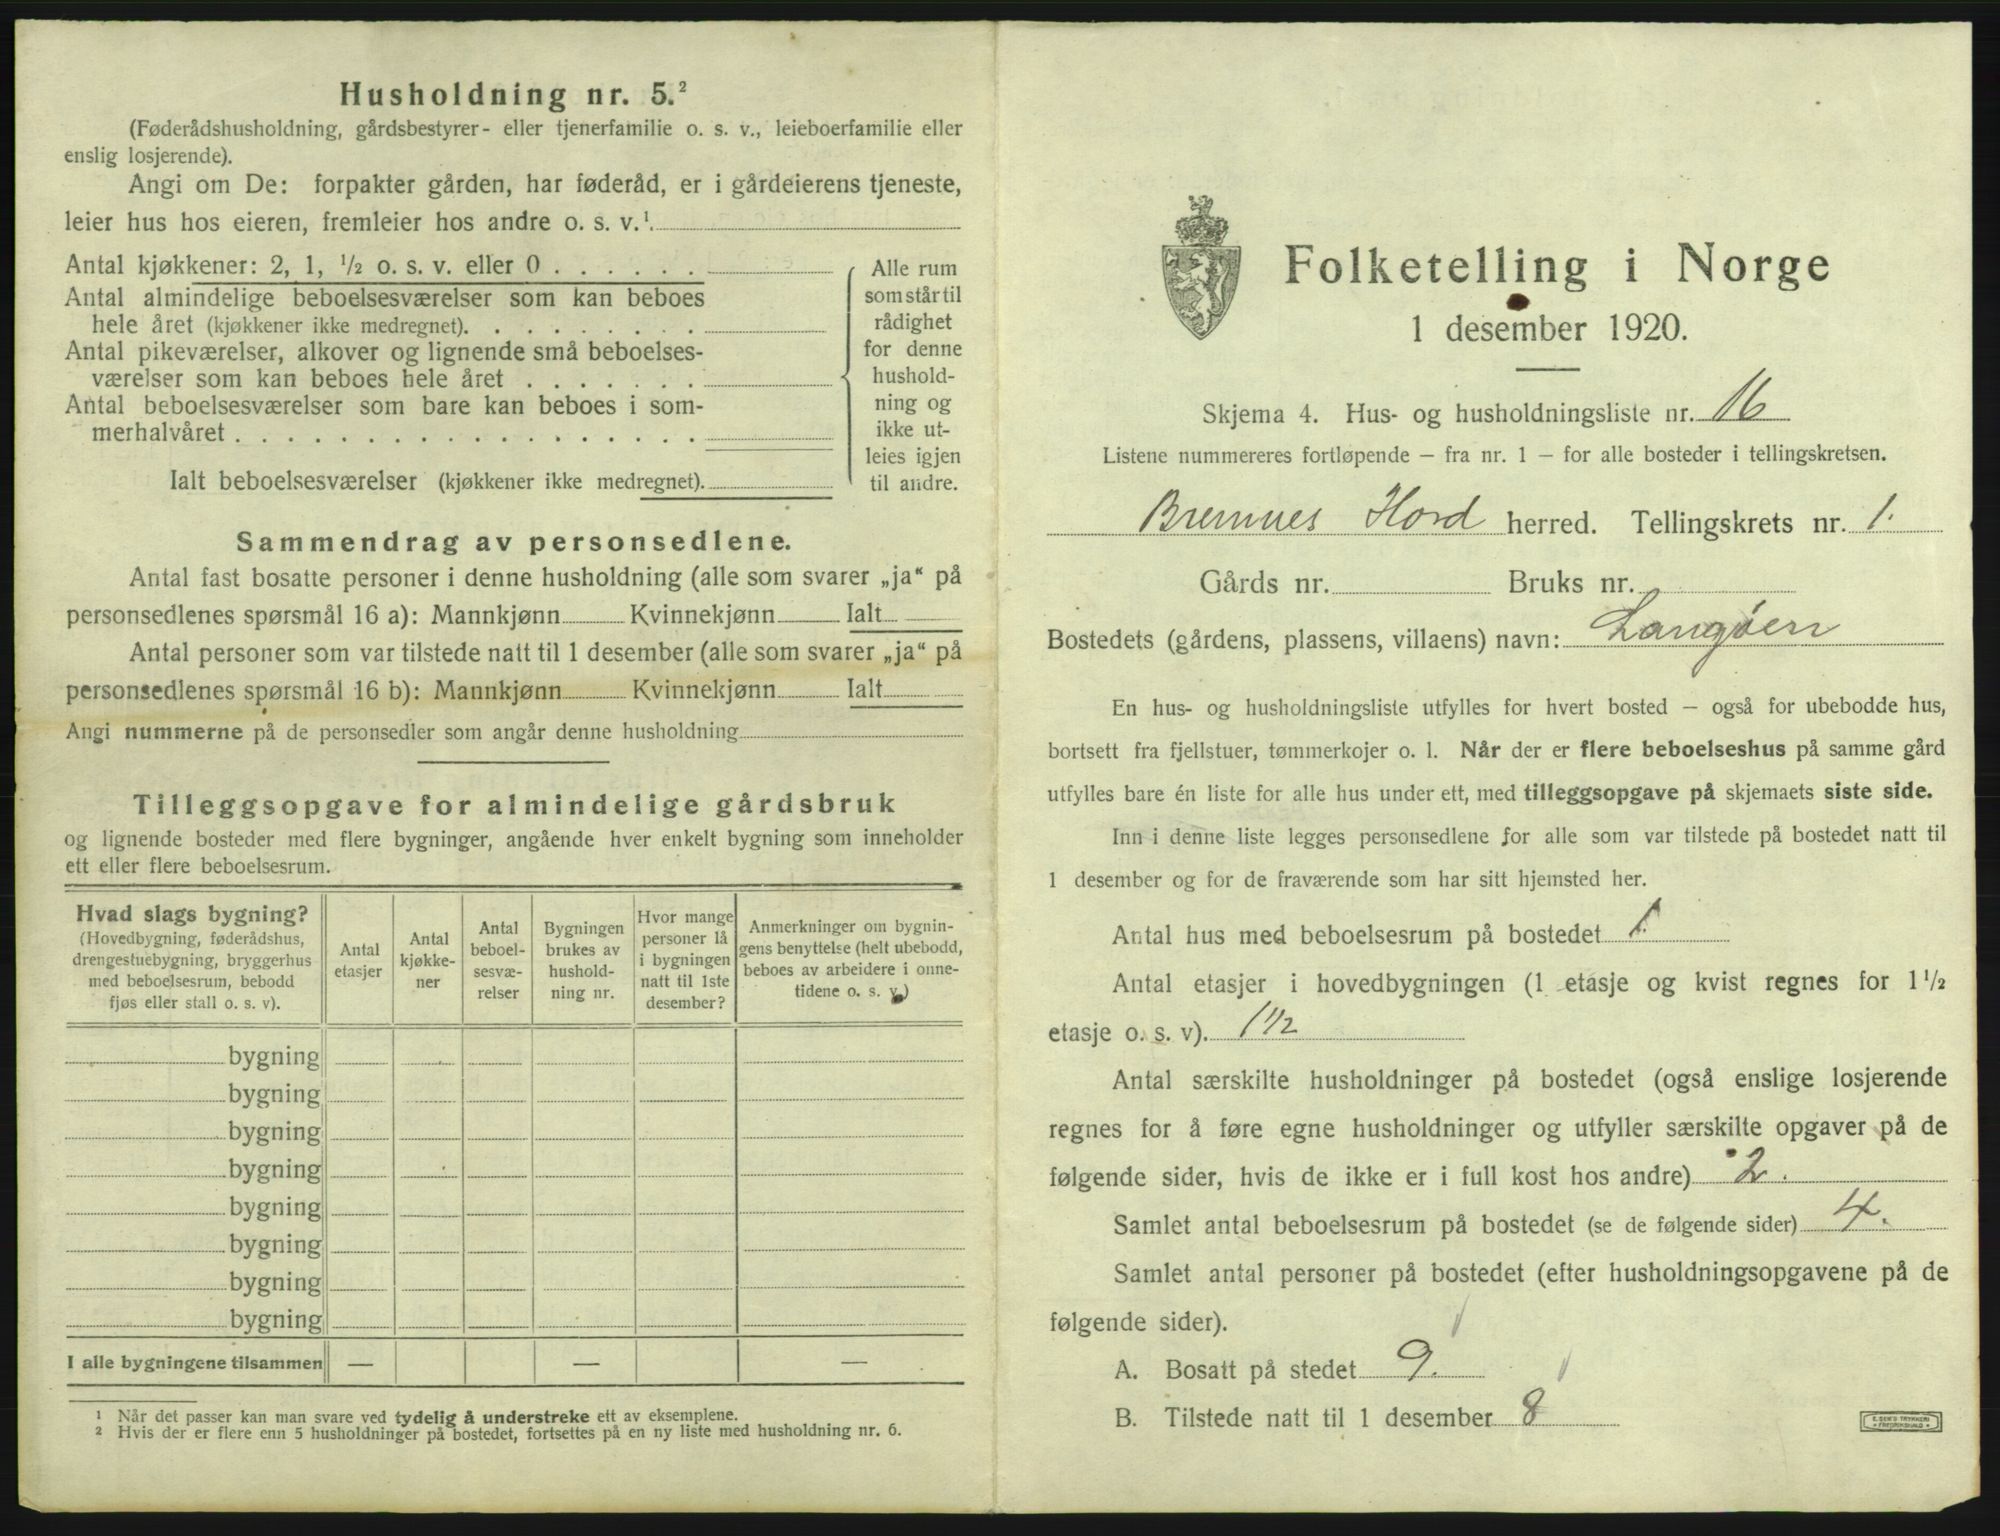 Husholdning nr. 5.²
(Føderådshusholdning, gårdsbestyrer- eller tjenerfamilie o. s. v., leieboerfamilie eller
enslig losjerende).
Angi om De: forpakter gården, har føderåd, er i gårdeierens tjeneste,
leier hus hos eieren, fremleier hos andre o. s. v.¹
Antal kjøkkener: 2, 1, ½ o. s. v. eller 0 . . . . . .
Antal almindelige beboelsesværelser som kan beboes
hele året (kjøkkener ikke medregnet). . . . . . . . .
Antal pikeværelser, alkover og lignende små beboelses-
værelser som kan beboes hele året . . . . . . .
Antal beboelsesværelser som bare kan beboes i som-
merhalvåret . . . . . . . . . . . . . . . . . .
Ialt beboelsesværelser (kjøkkener ikke medregnet).
Alle rum
som står til
rådighet
for denne
hushold-
ning og
ikke ut-
leies igjen
til andre.
Sammendrag av personsedlene.
Antal fast bosatte personer i denne husholdning (alle som svarer „ja“ på
personsedlenes spørsmål 16 a): Mannkjønn Kvinnekjønn Ialt
Antal personer som var tilstede natt til 1 desember (alle som svarer „ja“ på
personsedlenes spørsmål 16 b): Mannkjønn Kvinnekjønn Ialt
Angi nummerne på de personsedler som angår denne husholdning
Tilleggsopgave for almindelige gårdsbruk
og lignende bosteder med flere bygninger, angående hver enkelt bygning som inneholder
ett eller flere beboelsesrum.
Hvad slags bygning?
(Hovedbygning, føderådshus,
drengestuebygning, bryggerhus
med beboelsesrum, bebodd
fjøs eller stall o. s. v).
Antal
etasjer
Antal
kjøkke-
ner
Antal
beboel-
sesvæ-
relser
Bygningen
brukes av
hushold-
ning nr.
Hvor mange
personer lå
i bygningen
natt til 1ste
desember?
Anmerkninger om bygnin-
gens benyttelse (helt ubebodd,
beboes av arbeidere i onne-
tidene o. s. v.)
bygning
bygning
bygning
bygning
bygning
bygning
bygning
bygning
I alle bygningene tilsammen — — —
¹ Når det passer kan man svare ved tydelig å understreke ett av eksemplene.
² Hvis der er flere enn 5 husholdninger på bostedet, fortsettes på en ny liste med husholdning nr. 6.
Folketelling i Norge
1 desember 1920.
Skjema 4. Hus- og husholdningsliste nr. 16
Listene nummereres fortløpende – fra nr. 1 – for alle bosteder i tellingskretsen.
Bremnes Hord herred. Tellingskrets nr. 1.
Gårds nr. Bruks nr.
Bostedets (gårdens, plassens, villaens) navn: Langøen
En hus- og husholdningsliste utfylles for hvert bosted – også for ubebodde hus,
bortsett fra fjellstuer, tømmerkojer o. l. Når der er flere beboelseshus på samme gård
utfylles bare én liste for alle hus under ett, med tilleggsopgave på skjemaets siste side.
Inn i denne liste legges personsedlene for alle som var tilstede på bostedet natt til
1 desember og for de fraværende som har sitt hjemsted her.
Antal hus med beboelsesrum på bostedet 1.
Antal etasjer i hovedbygningen (1 etasje og kvist regnes for 1½
etasje o. s. v). 1½
Antal særskilte husholdninger på bostedet (også enslige losjerende
regnes for å føre egne husholdninger og utfyller særskilte opgaver på de
følgende sider, hvis de ikke er i full kost hos andre) 2.
Samlet antal beboelsesrum på bostedet (se de følgende sider) 4.
Samlet antal personer på bostedet (efter husholdningsopgavene på de
følgende sider).
A. Bosatt på stedet 9.
B. Tilstede natt til 1 desember 8
E. SEM'S TRYKKERI
FREDRIKSHALD